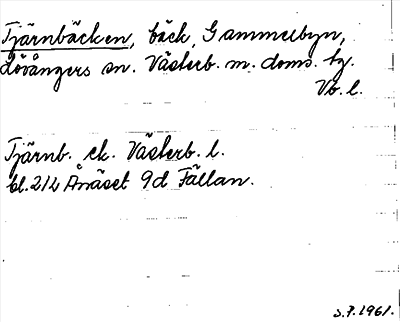 Tjärnbäcken, bäck, Gammelbyn,
Lövångers sn. Västerb. m. doms. tg.
Vb. l.
Tjärnb. ek. Västerb. l.
bl. 212 Ånäset 9d Fällan.
s.7.1961.